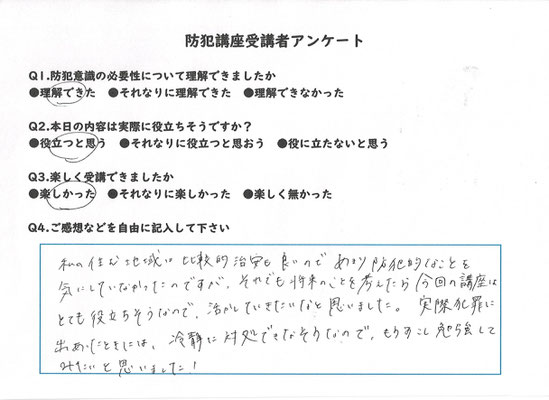 防犯講座受講者アンケート
Q1.防犯意識の必要性について理解できましたか
●理解できた　●それなりに理解できた　●理解できなかった
Q2.本日の内容は実際に役立ちそうですか？
●役立つと思う　●それなりに役立つと思おう　●役に立たないと思う
Q3.楽しく受講できましたか
●楽しかった　●それなりに楽しかった　●楽しく無かった
Q4.ご感想などを自由に記入して下さい
私の住む地域は比較的治安も良いので あまり防犯的なことを
気にしていなかったのですが、それでも将来のことを考えたら今回の講座は
とても役立ちそうなので、活かしていきたいなと思いました。実際犯罪に
出あったときには、冷静に対処できなそうなので、もうすこし勉強して
みたいと思いました！